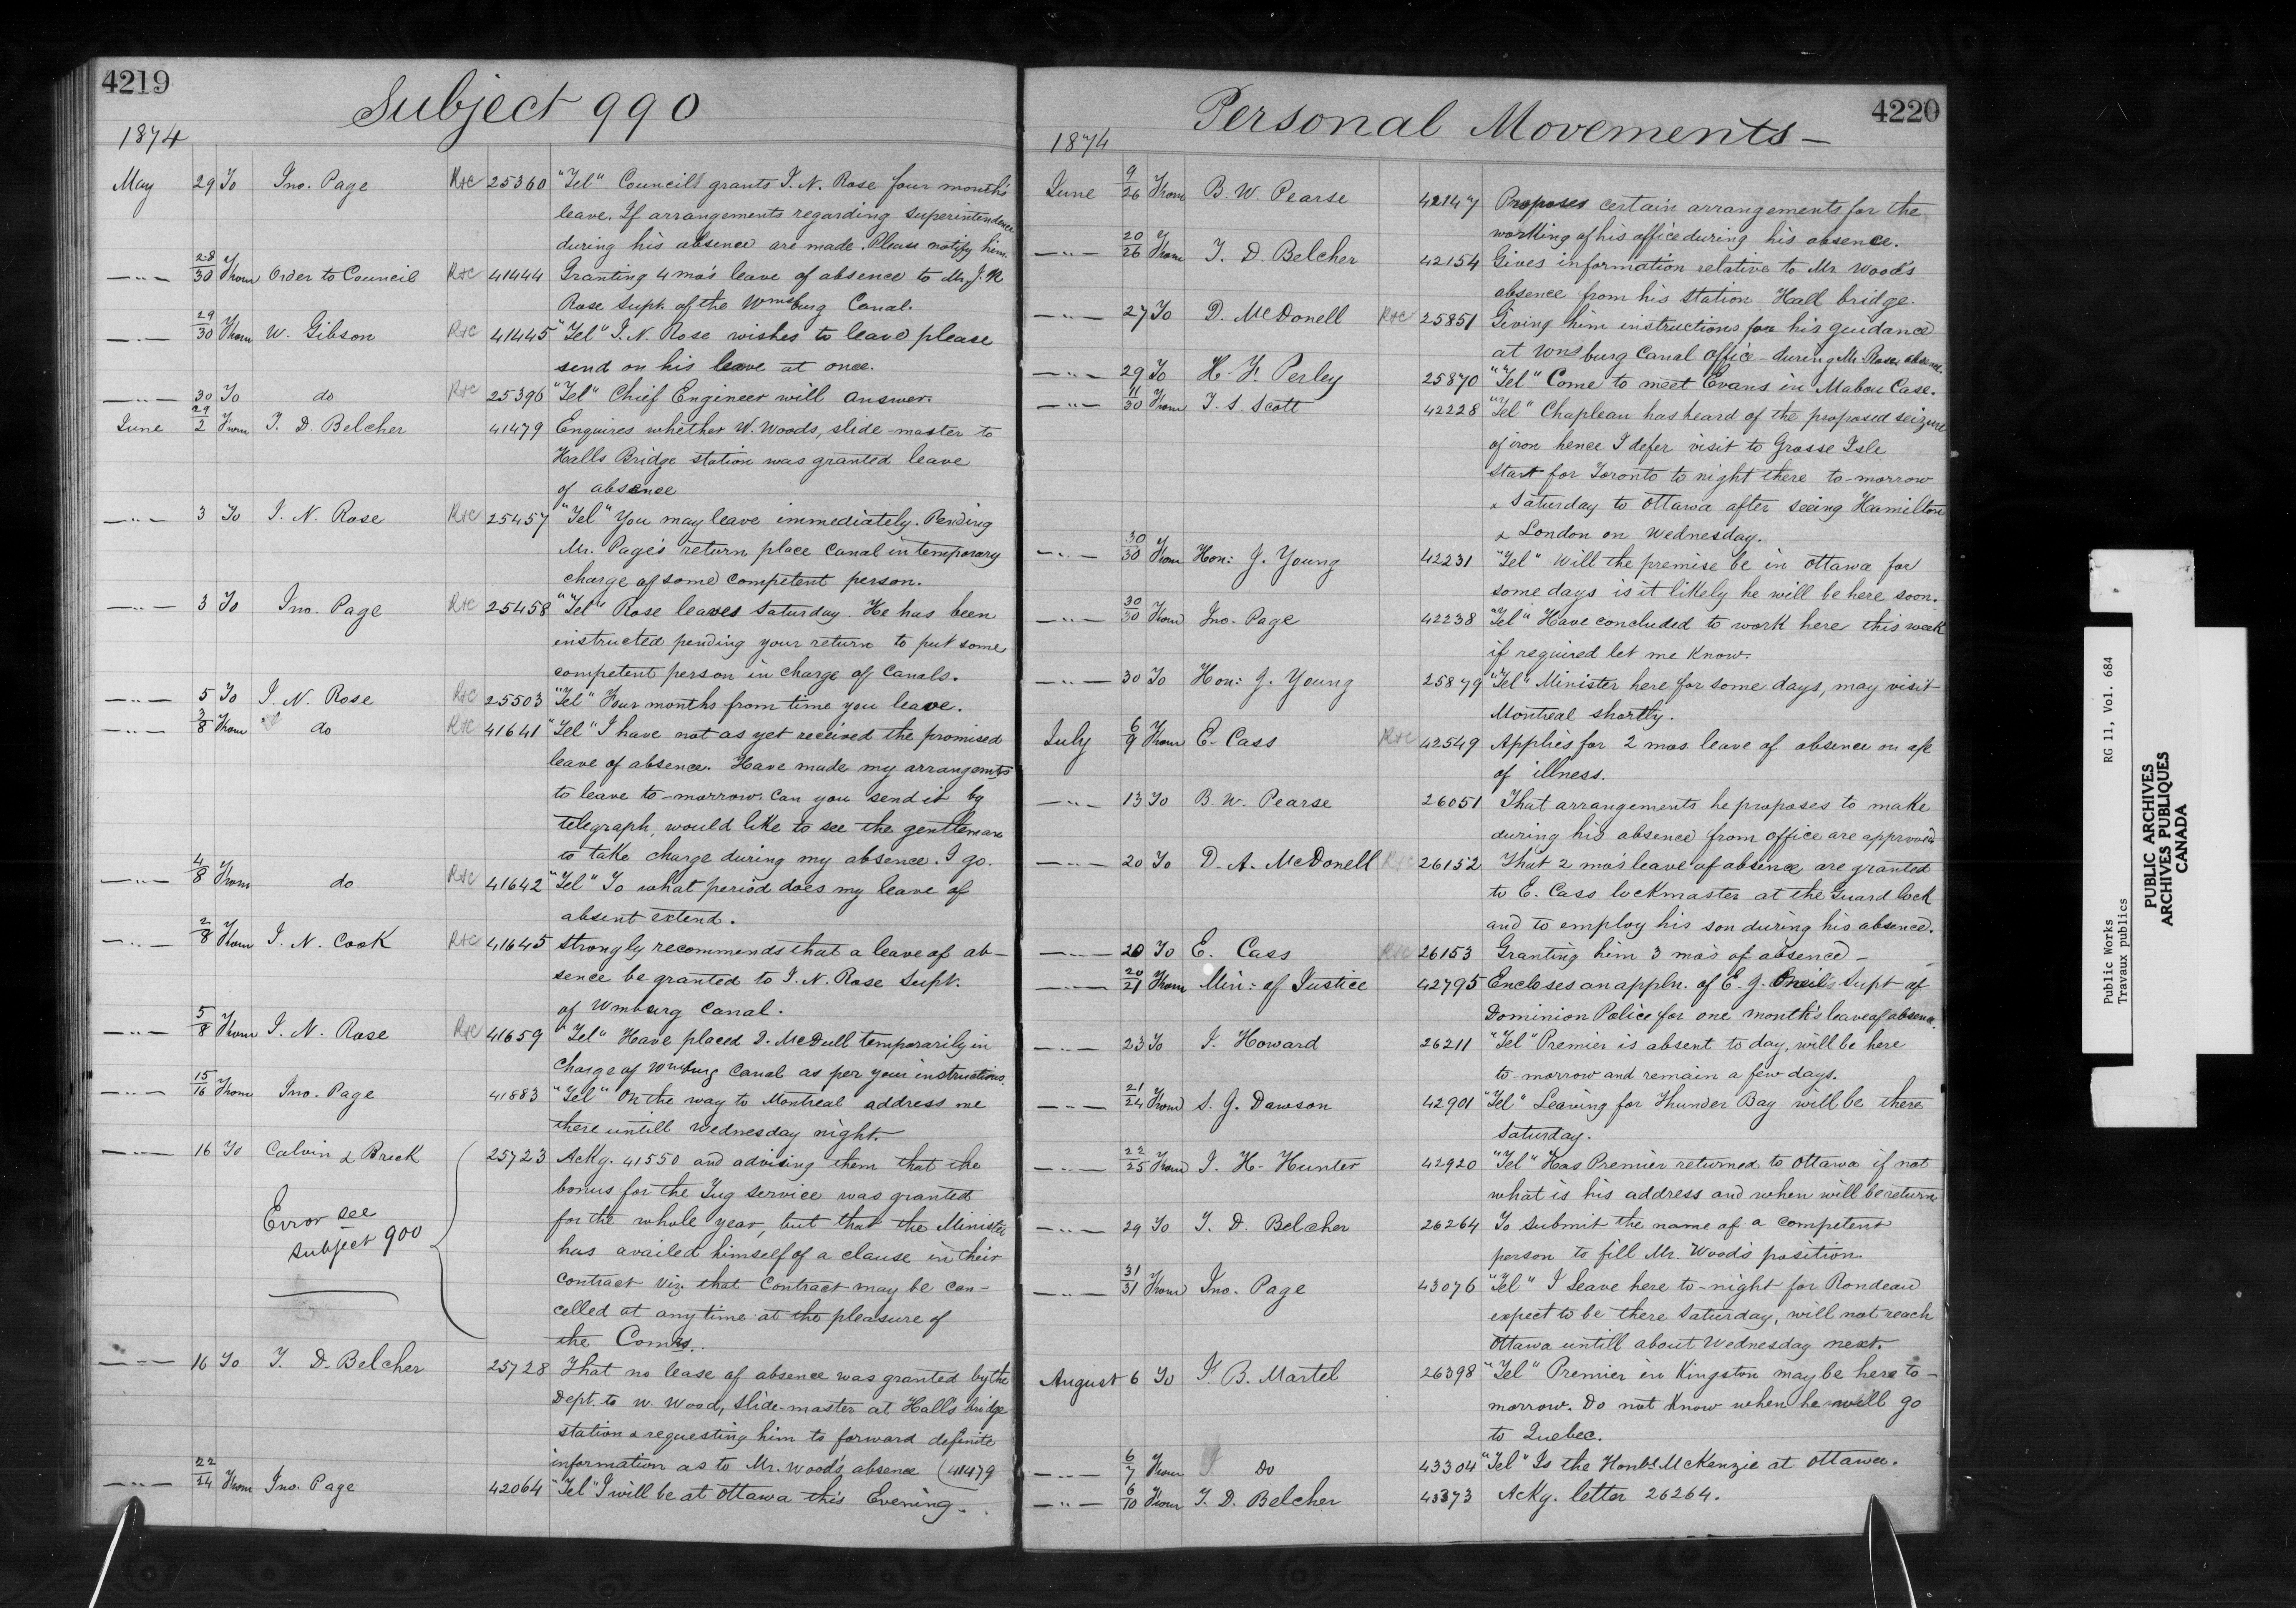 4219
Subject 990
1874
May 29 To Jno. Page R+C 25360 "Tel" Council grants I. N. Rose four month's
leave. If arrangements regarding superintendence
during his absence are made. Please notify him.
—"— 28/30 From Order to Council R+C 41444 Granting 4 mo's leave of absence to Mr J. N
Rose Supt. of the Wmsburg Canal.
—"— 29/30 From W. Gibson R+C 41445 "Tel" I. N. Rose wishes to leave please
send on his leave at once.
—"— 30 To do R+C 25396 "Tel" Chief Engineer will answer.
June 29/2 From T. D. Belcher 41479 Enquires whether W. Woods, slide-master to
Halls Bridge station was granted leave
of absence
—"— 3 To I. N. Rose R+C 25457 "Tel" You may leave immediately. Pending
Mr. Page's return place Canal in temporary
charge of some competent person.
—"— 3 To Jno. Page R+C 25458 "Tel" Rose leaves Saturday. He has been
instructed pending your return to put some
competent person in charge of Canals.
—"— 5 To I. N. Rose R+C 25503 "Tel" Four months from time you leave.
—"— 3/8 From do R+C 41641 "Tel" I have not as yet received the promised
leave of absence. Have made my arrangemts
to leave to-morrow. Can you send it by
telegraph, would like to see the gentleman
to take charge during my absence. I go.
—"— 4/8 From do R+C 41642 "Tel" To what period does my leave of
absent extend.
—"— 2/8 From I. N. Cook R+C 41645 Strongly recommends that a leave of ab-
sence be granted to I. N. Rose Supt.
of Wmburg Canal.
—"— 5/8 From I. N. Rose R+C 41659 "Tel" Have placed D. McDull temporarily in
charge of Wmsburg Canal as per your instructions.
—"— 15/16 From Jno. Page 41883 "Tel" On the way to Montreal address me
there untill Wednesday night.
—"— 16 To Calvin & Breck 25723 Ackg. 41550 and advising them that the
bonus for the Tug service was granted
for the whole year, but that the Minister
has availed himself of a clause in their
contract viz. that Contract may be can-
celled at any time at the pleasure of
the Comrs.
Error see
subject 900
—"— 16 To T. D. Belcher 25728 That no lease of absence was granted by the
Dept. to W. Wood, slide-master at Hall's bridge
station & requesting him to forward definite
information as to Mr. Wood's absence (41479
—"— 22/24 From Jno. Page 42064 "Tel" I will be at Ottawa this Evening.
4220
Personal Movements—
1874
June 9/26 From B. W. Pearse 42147 Proposes certain arrangements for the
working of his office during his absence.
—"— 20/26 From T. D. Belcher 42154 Gives information relative to Mr Woods
absence from his station Hall bridge.
—"— 27 To D. McDonell R+C 25851 Giving him instructions for his guidance
at Wmsburg Canal Office during Mr Rose's absence.
—"— 29 To H. F. Perley 25870 "Tel" Come to meet Evans in Mabou Case.
—"— 11/30 From T. S. Scott 42228 "Tel" Chapleau has heard of the proposed seizure
of iron hence I defer visit to Grosse Isle
start for Toronto to night there to-morrow
& Saturday to Ottawa after seeing Hamilton
& London on Wednesday.
—"— 30/30 From Hon: J. Young 42231 "Tel" Will the premise be in Ottawa for
some days is it likely he will be here soon.
—"— 30/30 From Jno. Page 42238 "Tel" Have concluded to work here this week
if required let me know.
—"— 30 To Hon: J. Young 25879 "Tel" Minister here for some days, may visit
Montreal shortly.
July 6/9 From E. Cass R+C 42549 Applies for 2 mos. leave of absence on a/c
of illness.
—"— 13 To B. W. Pearse 26051 That arrangements he proposes to make
during his absence from office are approved
—"— 20 To D. A. McDonell R+C 26152 That 2 mo's leave of absence are granted
to E. Cass lockmaster at the Guard lock
and to employ his son during his absence.
—"— 20 To E. Cass R+C 26153 Granting him 3 mo's of absence—
—"— 20/21 From Min: of Justice 42795 Encloses an appln. of E. J. Oneil's Supt of
Dominion Police for one month's leave of absence.
—"— 23 To J. Howard 26211 "Tel" Premier is absent to day, will be here
to-morrow and remain a few days.
—"— 21/24 From S. J. Dawson 42901 "Tel" Leaving for Thunder Bay will be there
Saturday.
—"— 22/25 From J. H. Hunter 42920 "Tel" Has Premier returned to Ottawa if not
what is his address and when will be return
—"— 29 To T. D. Belcher 26264 To submit the name of a competent
person to fill Mr. Wood's position.
—"— 31/31 From Jno. Page 43076 "Tel" I leave here to-night for Rondeau
expect to be there Saturday, will not reach
Ottawa untill about Wednesday next.
August 6 To J. B. Martel 26398 "Tel" Premier in Kingston may be here to-
morrow. Do not know when he will go
to Quebec.
—"— 6/7 From Do 43304 "Tel" Is the Honble McKenzie at Ottawa.
—"— 6/10 From T. D. Belcher 43373 Ackg. letter 26264.
Public Works RG 11, Vol. 684
Travaux publics
PUBLIC ARCHIVES
ARCHIVES PUBLIQUES
CANADA